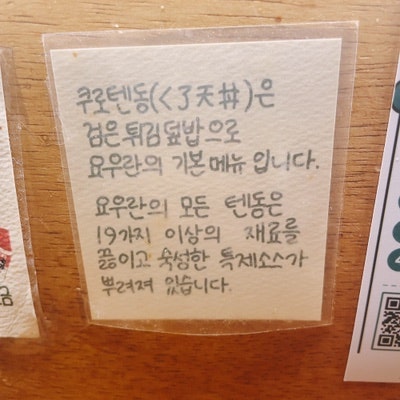 쿠로텐동(くろ天丼)은
검은 튀김덮밥으로
요우란의 기본메뉴 입니다.
요우란의 모든 텐동은
19가지 이상의 재료를
끓이고 숙성한 특제소스가
뿌려져 있습니다.